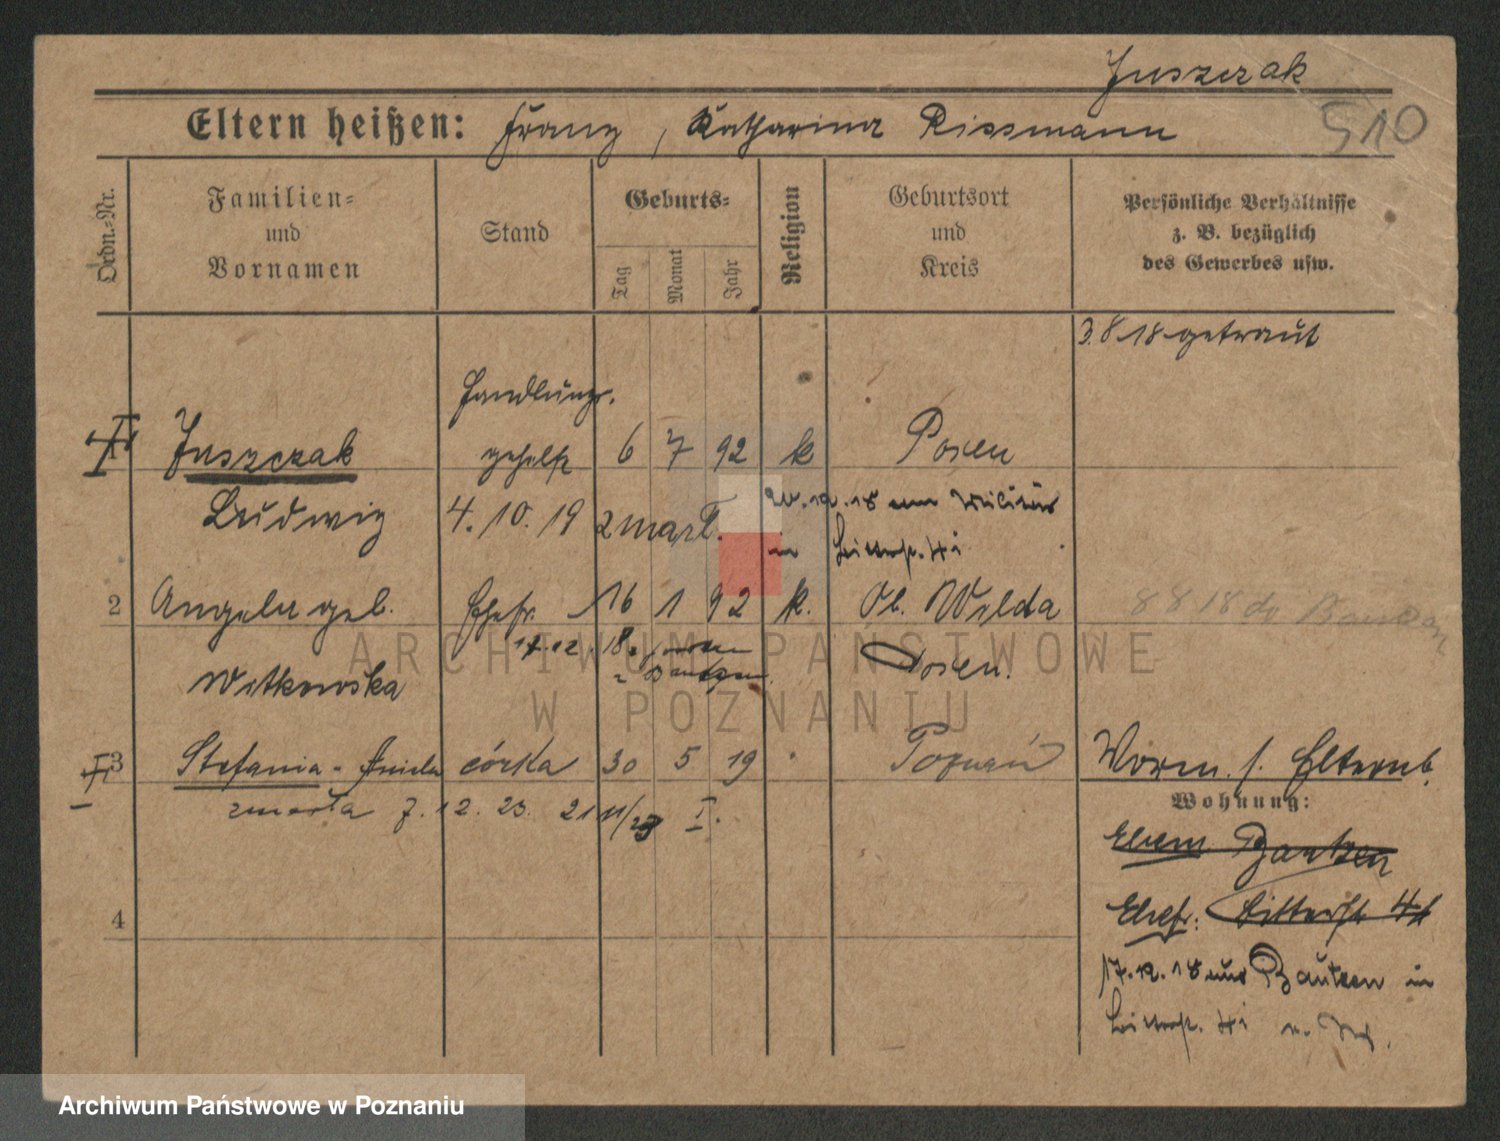 Juszczak
510
Eltern heißen: Franz, Katharina Rissmann
Ordn.-Nr.
Familien- und Vornamen
Stand
Geburts-
Tag
Monat
Jahr
Religion
Geburtsort und Kreis
Persönliche Verhältnisse z. B. bezüglich des Gewerbes usw.
3.8.18 getraut
Handlungs-
Juszczak gehilfe 6 7 92 k Posen
Ludwig 4.10.19 zmarł.
20.12.18 vom Militär
in Bitterstr. 41
2 Angela geb. Ehefr. 16 1 92 k. Ob. Wilda
8 8 18 Bautzen
17.12.18
Witkowska Bautzen. Posen.
3 Stefania- córka 30 5 19 Poznań
Worm. s. Elternb.
zmarła 7.12.23. 21 11/23 I.
Wohnung:
Ehem Bautzen
4
Ehefr: Bitterstr 41
17.12.18 aus Bautzen in
Bitterstr. 41
ARCHIWUM PAŃSTWOWE
W POZNANIU
Archiwum Państwowe w Poznaniu